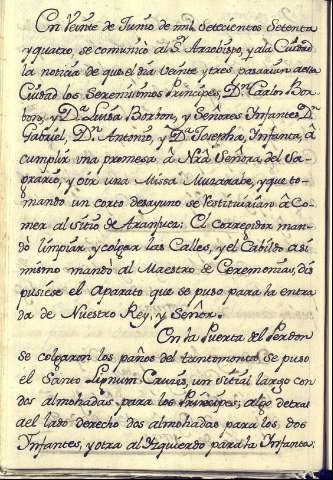 En Veinte de Junio de mil Setecientos Setenta
y quatro se comunicó al S. Arzobispo, y á la Ciudad
la noticia de que el dia Veinte y tres pasarian a esta
Ciudad los Serenisimos Principes, Dn. Carlos Bor-
bon, y Da. Luisa Borbon, y Señores Infantes Dn.
Gabriel, Dn. Antonio, y Da. Josepha, Infanta, á
cumplir una promesa á Nrâ Señora, del Sa-
grario, y oir una Missa Muzarabe, y que to-
mando un corto desayuno se restituirian à Co-
mer al Sitio de Aranjuez: El corregidor man-
dó limpiar y colgar las Calles, y el Cabildo asi
mismo mandó al Maestro de Ceremonias, dis
pusiese el Aparato que se puso para la entra
da de Nuestro Rey, y Señor.
En la Puerta del Perdon
se colgaron los paños del tantomonta, se puso
el Santo Lignum Crucis, un sitial largo con
dos almohadas para los Principes; algo detras
ael lado derecho dos almohadas para los dos
Infantes, y otra al Izquierdo para la Infanta.